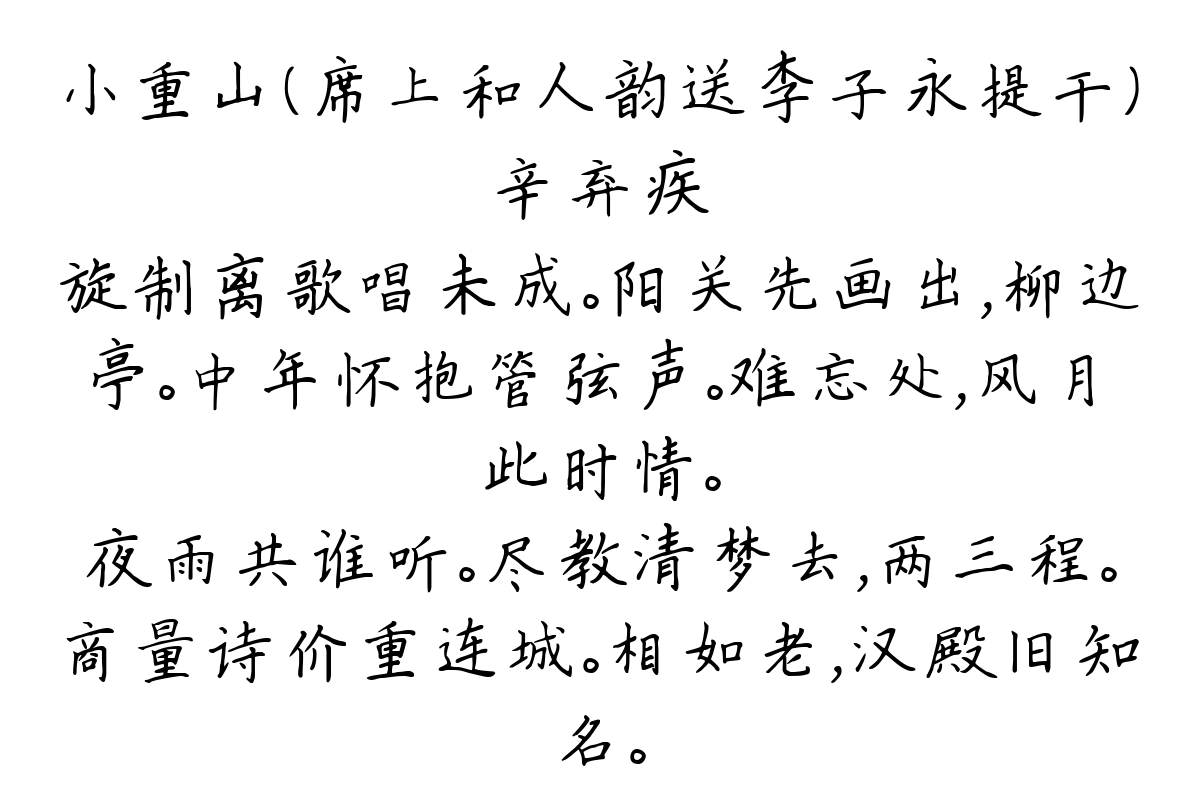 小重山(席上和人韵送李子永提干)
辛弃疾
旋制离歌唱未成。阳关先画出,柳边
亭。中年怀抱管弦声。难忘处,风月
此时情。
夜雨共谁听。尽教清梦去,两三程。
商量诗价重连城。相如老,汉殿旧知
名。